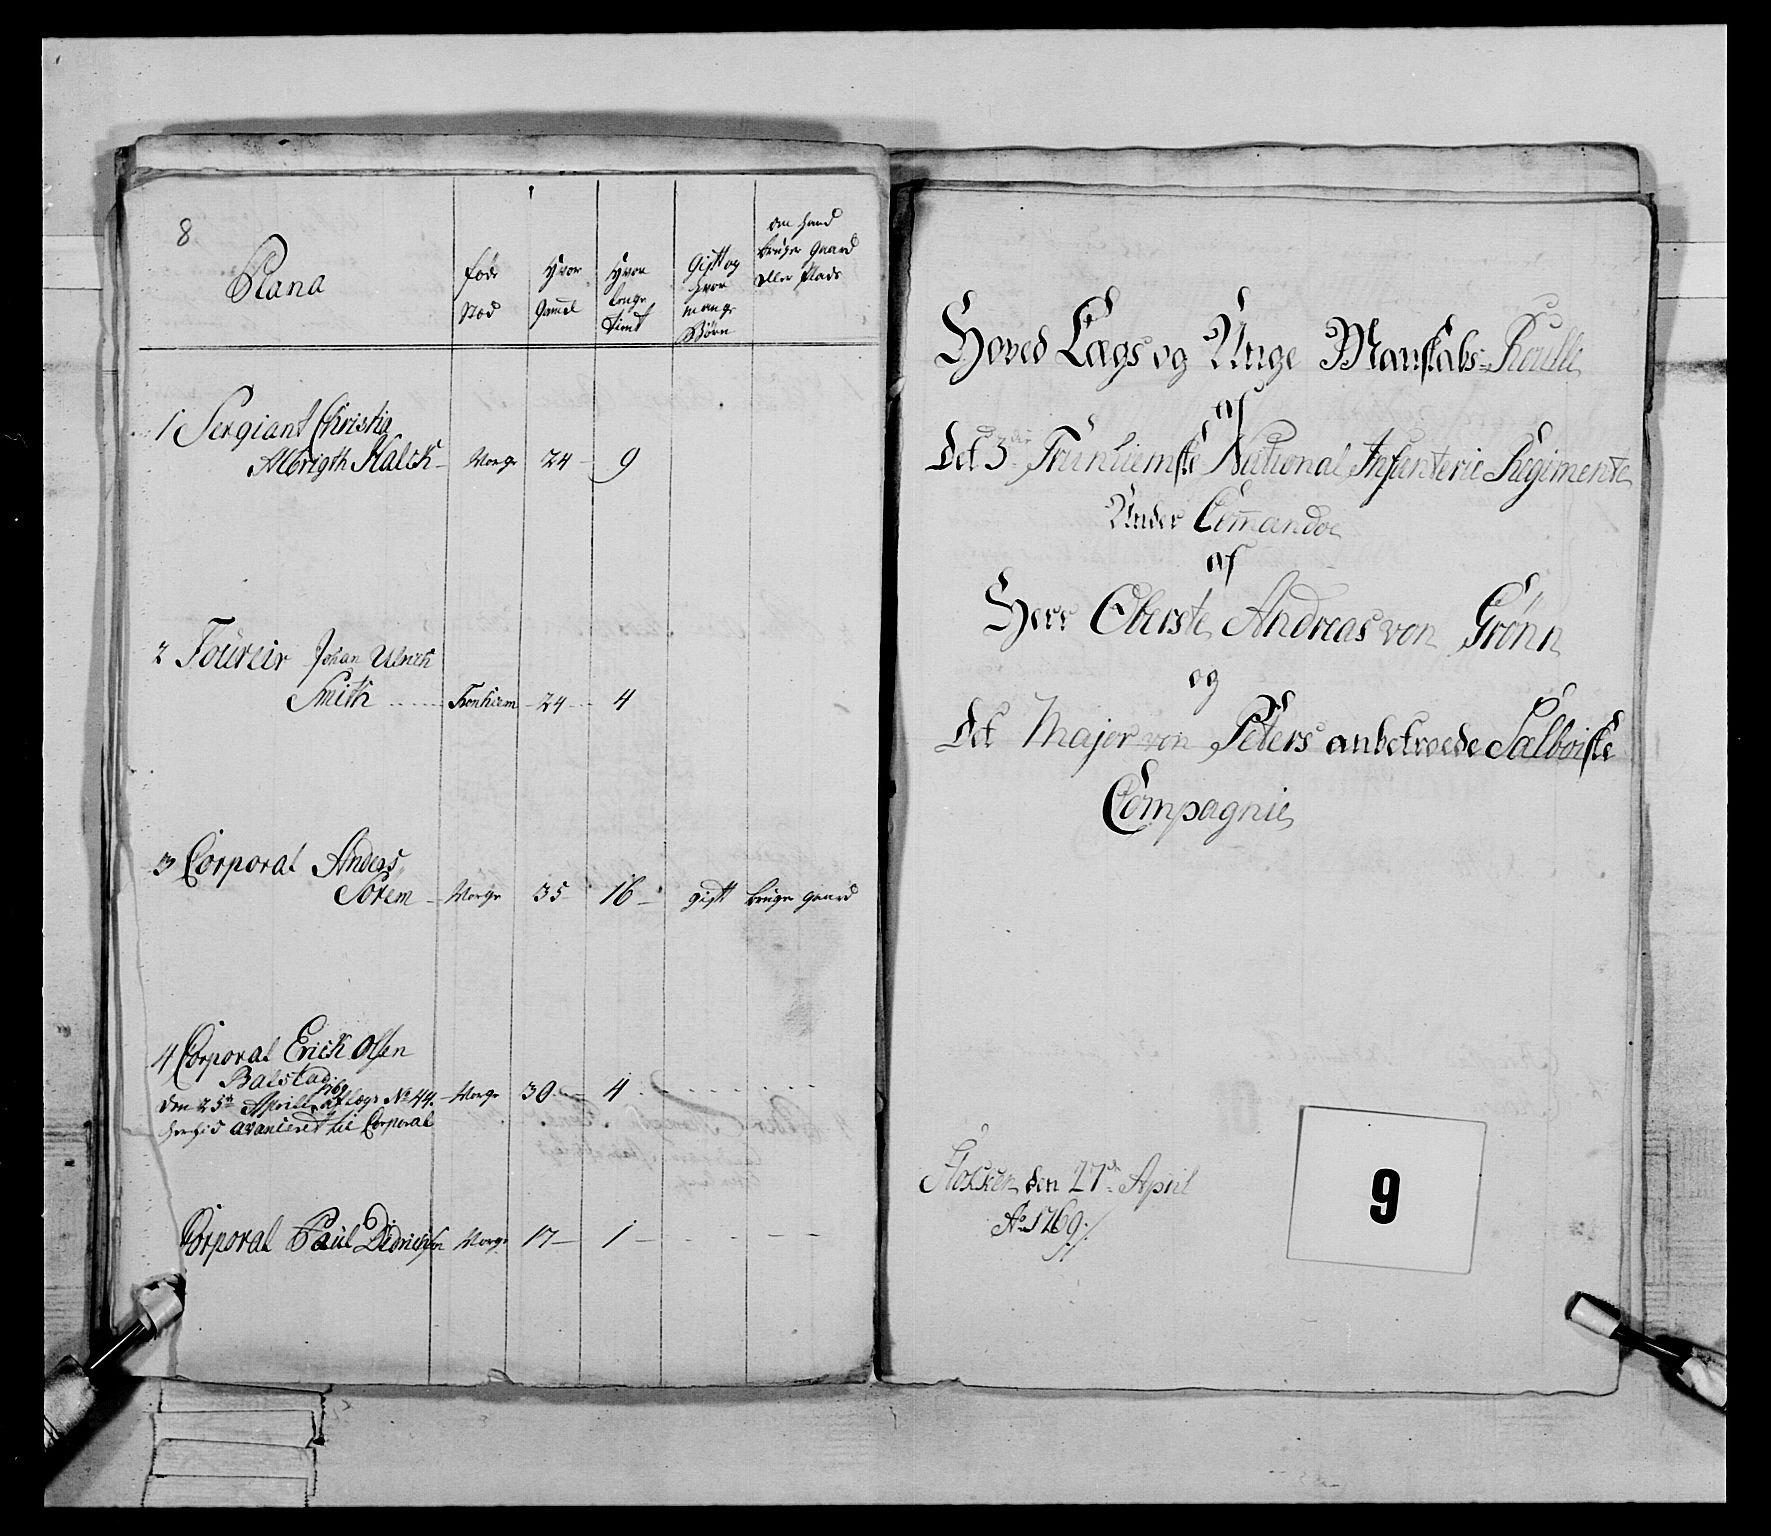 8
Plana
føde
Stæd
Hvor
Gamel
Hvor
lenge
tient
Gift og
hvor
mange
Børn
om hand
bruger Gaard
eller Plads
1 Sergiant Christia
Albrigth Kalck - Norge 24 - 9
2 Foureir Johan Ulrich
Smith ..... Tronhiem - 24 - 4
3 Corporal Anders
Sorem - Norge 35 - 16 - gift bruger gaard
4 Corporal Erich Olsen
Balstad
den 25de April 1769 af lægs No 44. - Norge 30 - 4
avanceret til Corporal
Corporal Paul Didrichsen Norge 17 - 1 -
Hoved Lægs og Unge Manskabs-Roulle
af
Det 3die Trunhiemske National Infanterie Regimente
Under Comandoe
af
Herr Oberste Andreas von Grønn
og
Det Major von Peters anbetroede Sælboiske
Compagnie
den 27de April
Ao 1769
9